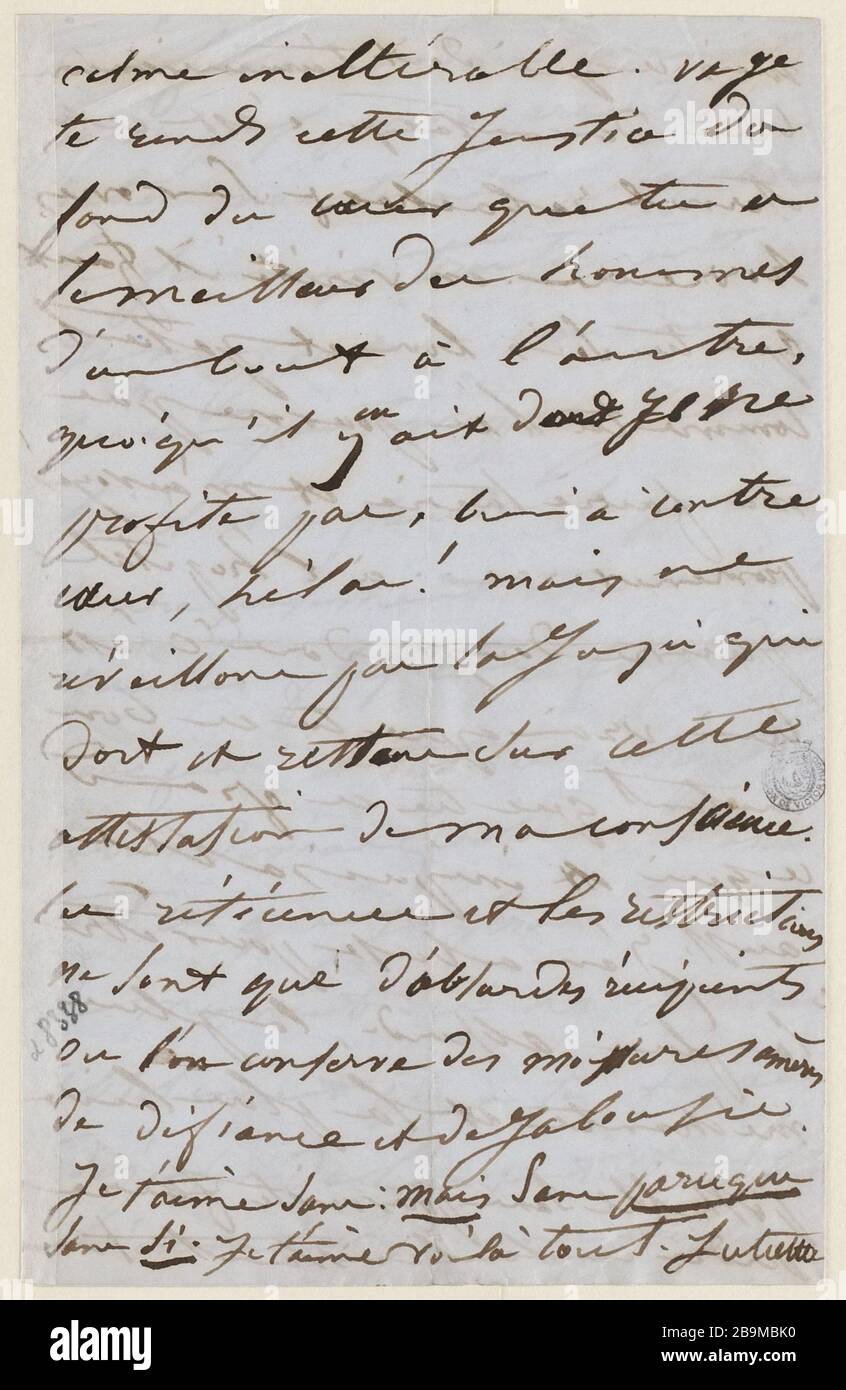 calme inaltérable. va je
te rends cette Justice du
fond du cœur que tu es
le meilleur des hommes
d'un bout à l'autre,
quoiqu'il y en ait dont je ne
profite pas, bien à contre
cœur, hélas! mais ne
réveillons pas la Jupé qui
dort et restons sur cette
attestation de ma conscience.
les réticences et les restrictions
ne sont que d'absurdes récipients
où l'on conserve des mixtures amères
de défiance et de Jalousie.
Je t'aime sans: mais sans parceque
sans si. Je t'aime voilà tout. Juliette
α 8388
alamy
Image ID: 2B9MBK0
www.alamy.com